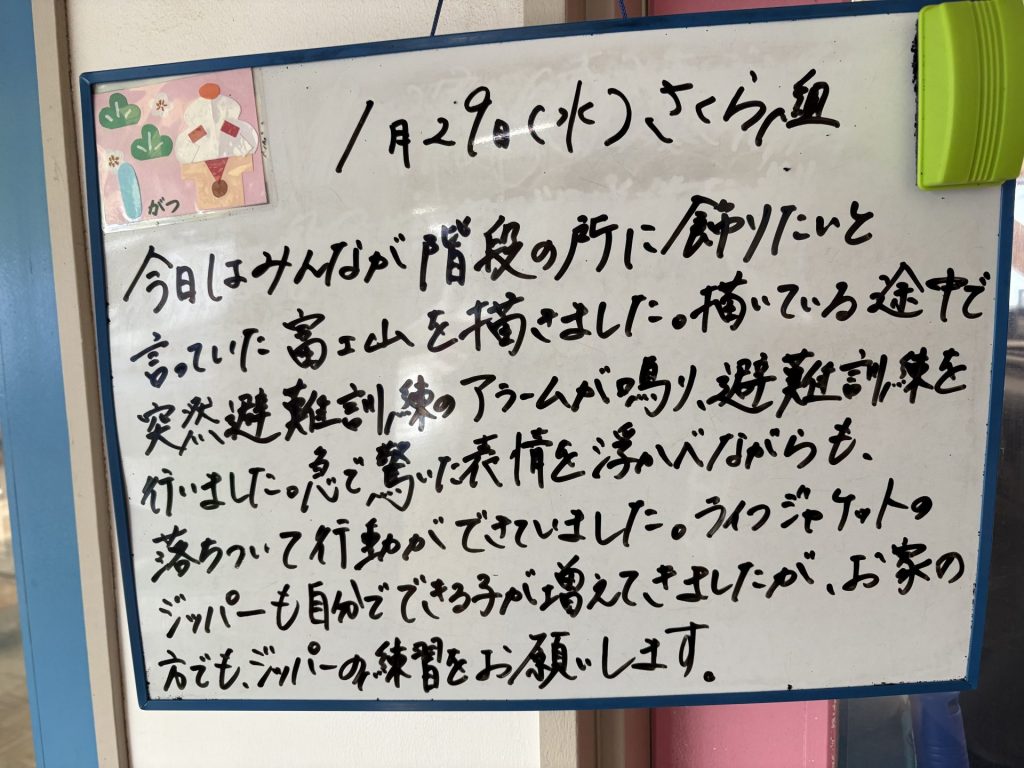 1月29日(水)さくら組
がつ
今日はみんなが階段の所に飾りたいと
言っていた富士山を描きました。描いている途中で
突然、避難訓練のアラームが鳴り、避難訓練を
行いました。急で驚いた表情を浮かべながらも、
落ちついて行動ができていました。ライフジャケットの
ジッパーも自分でできる子が増えてきましたが、お家の
方でも、ジッパーの練習をお願いします。